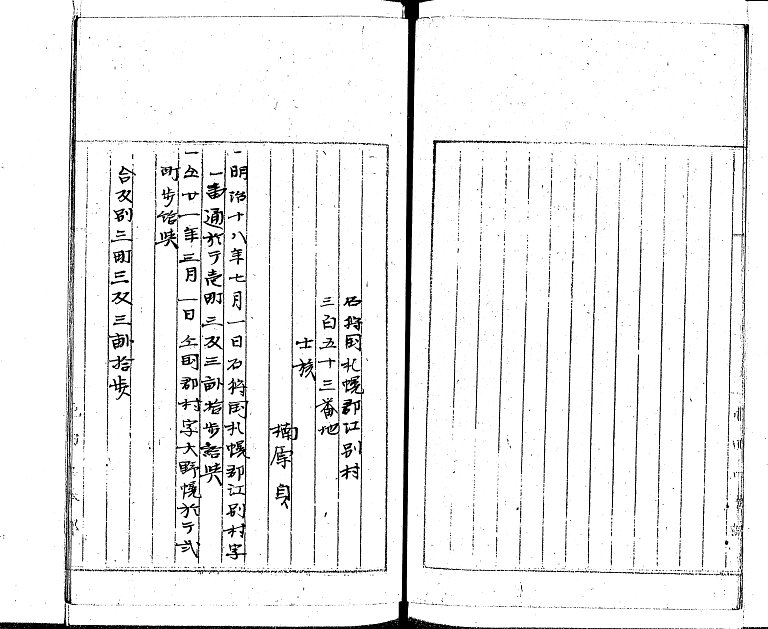 石狩国札幌郡江別村
三百五十三番地
士族
楠原貞
一明治十八年七月一日石狩国札幌郡江別村字
一番通於テ壱町三反三畝拾歩給与
一仝廿一年三月一日仝国郡村字大野幌於テ弐
町歩給与
合反別三町三反三畝拾歩